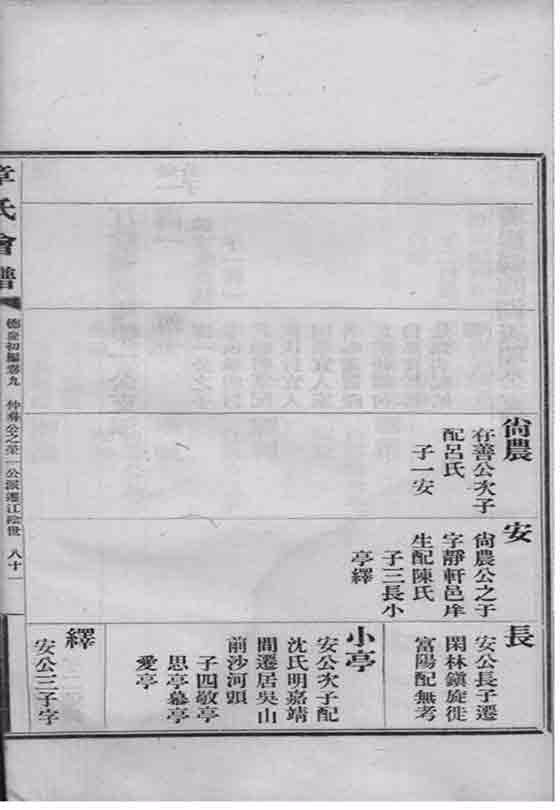 尙農
存善公次子
配呂氏
子一安
安
尙農公之子
字靜軒邑庠
生配陳氏
子三長小
亭繹
長
安公長子遷
閑林鎮旋徙
富陽配無考
小亭
安公次子配
沈氏明嘉靖
間遷居吳山
前沙河頭
子四敬亭
思亭慕亭
愛亭
繹
安公三子字
章氏會譜
德慶初編卷九
公派遷江陰世
八十一